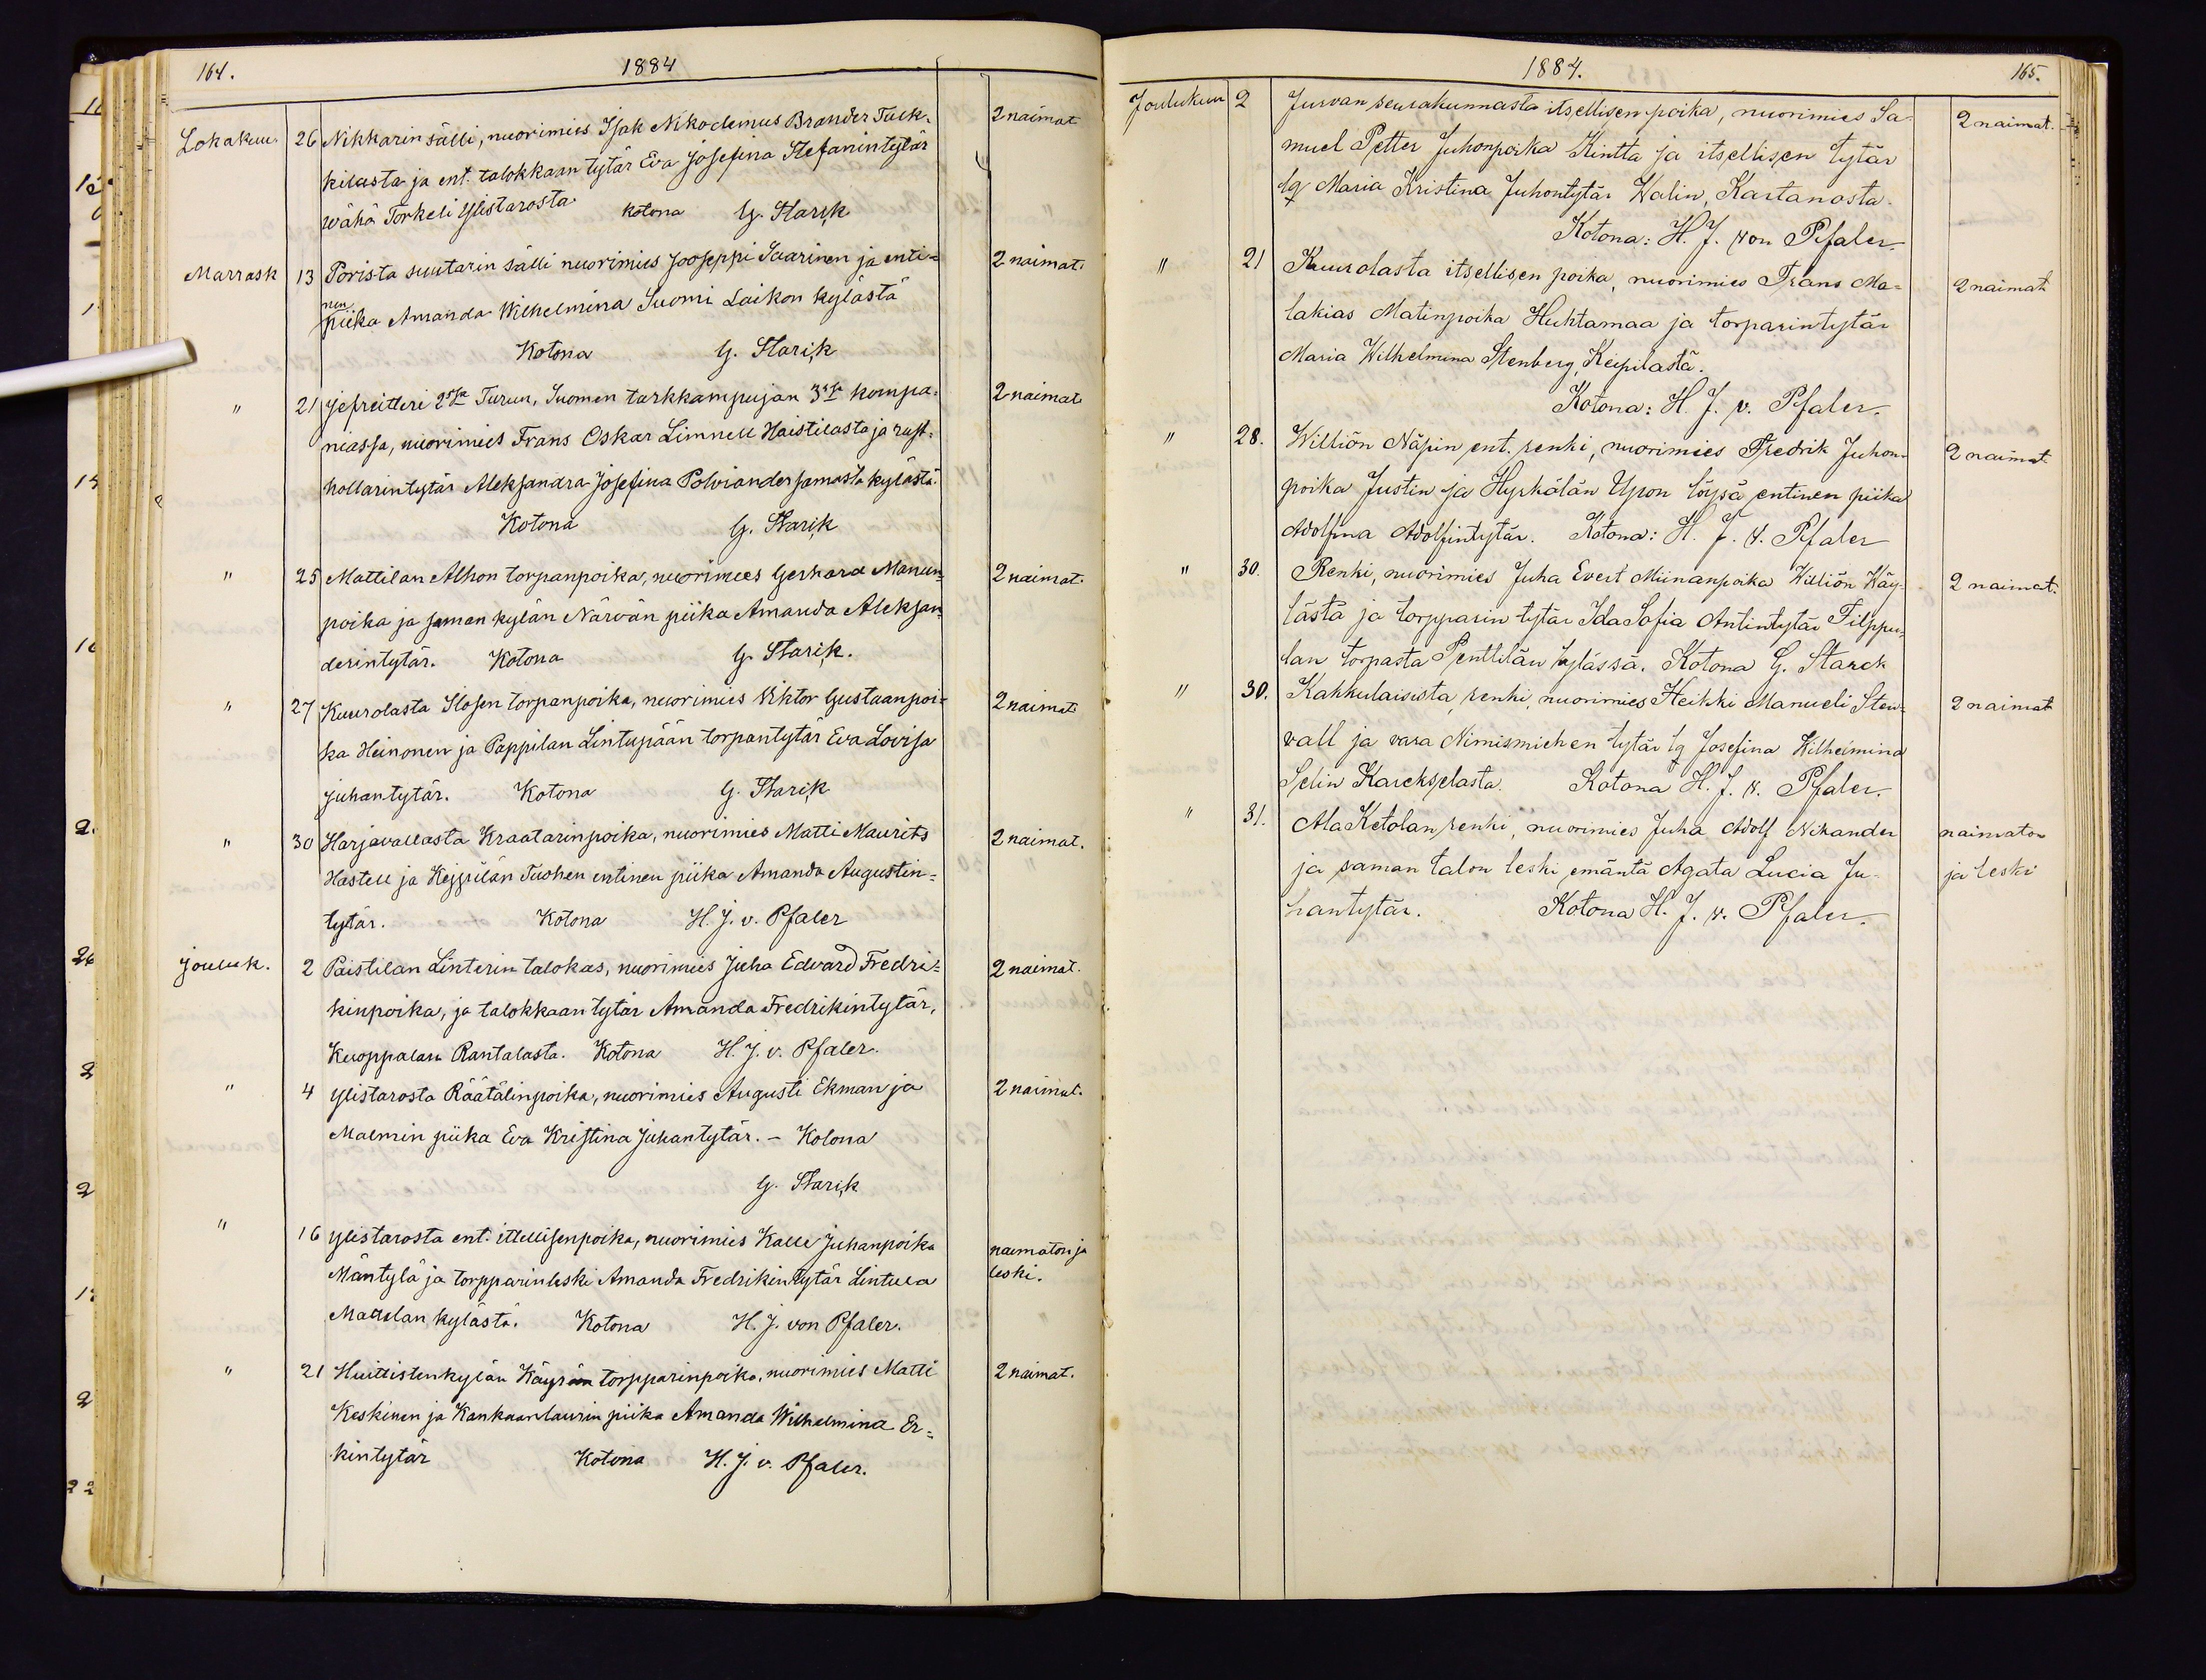 164.
1884
Lokakuu. 26 Nikkarin sälli, nuorimies Isak Nikodemus Brander Tuck- 2 naimat
kilasta ja ent. talokkaan tytär Eva Josefina Stefanintytär
wähä Torkeli Ylistarosta. Kotona G. Starck
Marrask 13 Porista suutarin sälli nuorimies Jooseppi Saarinen ja enti= 2 naimat.
nen piika Amanda Wilhelmina Suomi Laikon kylästä
Kotona G. Starck
" 21 Jefreitteri 2ssa Turun, Suomen tarkkampujan 3ssa kompa= 2 naimat.
niassa, nuorimies Frans Oskar Limnell Haistilasta ja rust=
hollarintytär Aleksandra Josefina Polviander samasta kylästä.
Kotona G. Starck
" 25 Mattilan Alhon torpanpoika, nuorimies Gerhard Manun= 2 naimat.
poika ja saman kylän Närvän piika Amanda Aleksan=
derintytär. Kotona G. Starck.
" 27 Kuurolasta Ilosen torpanpoika, nuorimies Viktor Gustaanpoi= 2 naimat
ka Heinonen ja Pappilan Lintupään torpantytär Eva Lovisa
Juhantytär. Kotona G. Starck
" 30 Harjavallasta Kraatarinpoika, nuorimies Matti Maurits 2 naimat.
Hastell ja Keippilän Tuohen entinen piika Amanda Augustin=
tytär. Kotona H. J. v. Pfaler
Jouluk. 2 Paistilan Linterin talokas, nuorimies Juha Edvard Fredri= 2 naimat.
kinpoika, ja talokkaan tytär Amanda Fredrikintytär,
Kuoppalan Rantalasta. Kotona H. J. v. Pfaler.
" 4 Ylistarosta Räätälinpoika, nuorimies Augusti Ekman ja 2 naimat.
Malmin piika Eva Kristina Juhantytär. - Kotona
G. Starck
" 16 Ylistarosta ent. itsellisenpoika, nuorimies Kalle Juhanpoika naimaton ja
Mäntylä ja torpparinleski Amanda Fredrikintytär Lintula leski.
Mattilan kylästä. Kotona H. J. von Pfaler.
" 21 Huittistenkylän Käyrän torpparinpoika, nuorimies Matti 2 naimat.
Keskinen ja Kankaanlaurin piika Amanda Wilhelmina Er=
kintytär Kotona H. J. v. Pfaler.
1884.
165.
Joulukuu 2 Jurvan seurakunnasta itsellisen poika, nuorimies Sa- 2 naimat.
muel Petter Juhonpoika Kintta ja itsellisen tytär
Maria Kristina Juhontytär Walin, Kartanosta.
Kotona: H. J. von Pfaler
" 21 Kuurolasta itsellisen poika, nuorimies Frans Ma= 2 naimat
lakias Matinpoika Huhtamaa ja torparintytär
Maria Wilhelmina Stenberg, Keipilastä.
Kotona: H. J. v. Pfaler.
" 28. Williön Näpin ent. renki, nuorimies Fredrik Juhon- 2 naimat
poika Justin ja Hyrkölän Upon löysä entinen piika
Adolfina Adolfintytär. Kotona: H. J. v. Pfaler
" 30. Renki, nuorimies Juha Evert Miinanpoika Williön Käy- 2 naimat.
lästä ja torpparin tytär Ida Sofia Antintytär Filppu=
lan torpasta Penttilän kylässä. Kotona G. Starck
" 30. Kahkulaisista, renki, nuorimies Heikki Manueli Sten= 2 naimat
vall ja vara Nimismiehen tytär Josefina Wilhelmina
Selin Karckselasta. Kotona H. J. v. Pfaler.
" 31. Ala Ketolan renki, nuorimies Juha Adolf Nikander naimaton
ja saman talon leski emäntä Agata Lucia Ju- ja leski
hantytär. Kotona H. J. v. Pfaler.